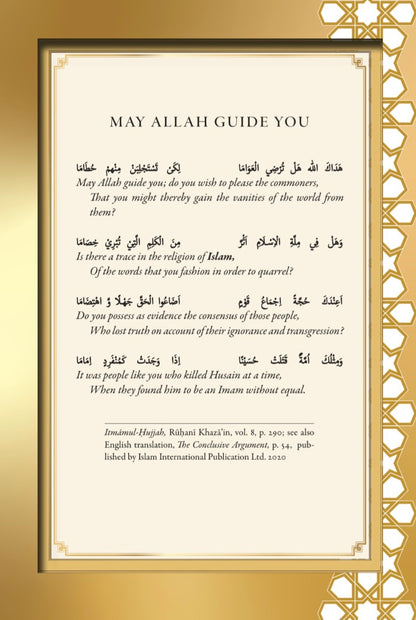 MAY ALLAH GUIDE YOU
هَدَاكَ اللّٰه هَلْ تُرْضِي الْعَوَامَا لِكَيْ تَسْتَجْلِبَنْ مِنْهمْ حُطَامَا
May Allah guide you; do you wish to please the commoners,
That you might thereby gain the vanities of the world from
them?
وَهَلْ فِي مِلَّةِ الْاِسْلَامِ اَثَرٌ مِنَ الْكَلِمِ الَّتِيْ تُبْرِيْ خِصَامَا
Is there a trace in the religion of Islam,
Of the words that you fashion in order to quarrel?
اَعِنْدَكَ حُجَّةٌ اِجْمَاعُ قَوْمٍ اَضَاعُوا الْحَقَّ جَهْلًا وَّ اهْتِضَامَا
Do you possess as evidence the consensus of those people,
Who lost truth on account of their ignorance and transgression?
وَمِثْلُكَ اُمَّةٌ قَتَلَتْ حُسَيْنًا اِذَا وَجَدَتْ كَمُنْفَرِدٍ اِمَامَا
It was people like you who killed Husain at a time,
When they found him to be an Imam without equal.
Itmāmul-Ḥujjah, Rūḥānī Khazā'in, vol. 8, p. 290; see also
English translation, The Conclusive Argument, p. 54, pub-
lished by Islam International Publication Ltd. 2020